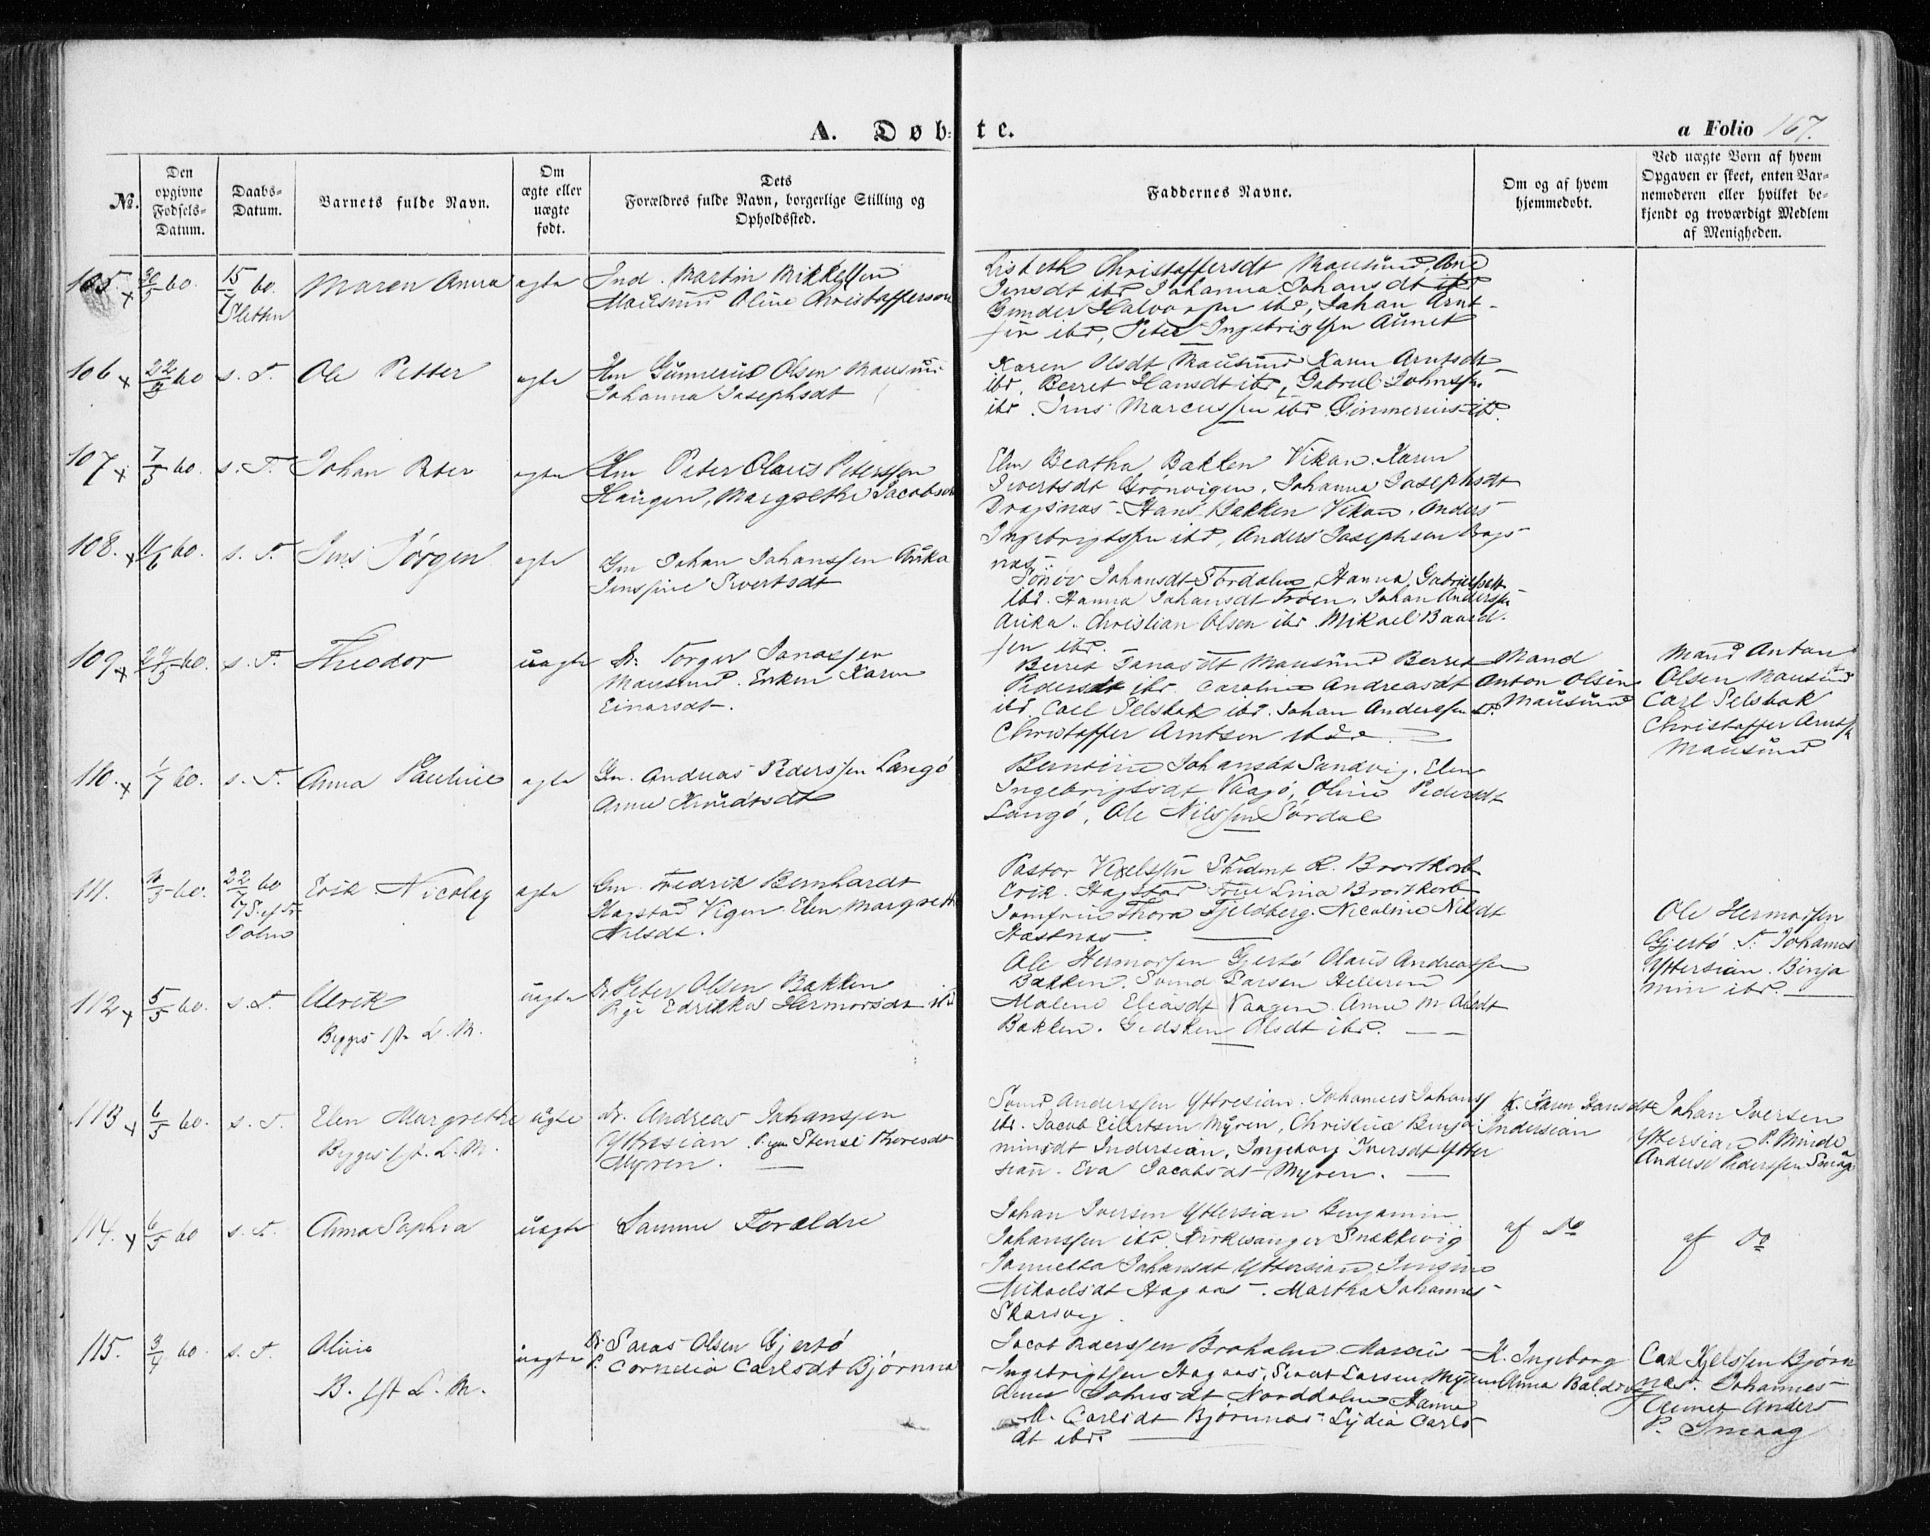 A. Døbte.
a Folio 167.
№.
Den opgivne Fødsels-Datum.
Daabs-Datum.
Barnets fulde Navn.
Om ægte eller uægte født.
Dets Forældres fulde Navn, borgerlige Stilling og Opholdssted.
Faddernes Navne.
Om og af hvem hjemmedøbt.
Ved uægte Born af hvem Opgaven er skeet, enten Barnemoderen eller hvilket bekjendt og troværdigt Medlem af Menigheden.
105. x 30/5 60. 15/7 60. Maren Anna ægte Ind. Martin Mikkelsen
Sletten Mausund Oline Christoffersdt
Lisbeth Christoffersdt Mausund, Ane
Jensdt ibd Johanna Johansdt ibd
Gunder Halvorsen ibd, Johan Arnt-
sen ibd, Peter Ingebrigtsen Aunet
106 x 22/5 60 s. D. Ole Petter ægte Hm Gunnerius Olsen Mausund
Johanna Josephsdt
Karen Olsdt Mausund Karen Arntsdt
ibd. Berret Hansdt ibd, Gabriel Johnsen
ibd. Jens Marcussen ibd Gunnerius ibd.
107 x 7/5 60. s. D. Johan Peter ægte Hm Peter Olaus Peterssen
Haugen, Margrethe Jacobsdt
Elen Beatha Bakken Vikan. Karen
Sivertsdt Grønvigen, Johanna Josephsdt
Dragsnas. Hans Bakken Vikan. Anders
Ingebrigtsen ibd, Anders Josephsen Drags-
nas.
108. x 11/6 60. s. D. Jens Jørgen ægte Gm Johan Johanssen Auka
Jenssine Sivertsdt
Johansdt Sørdalen, Hanna Gabrielsdt
ibd. Hanna Johansdt Trøen. Johan Anderssen
Auka. Christian Olsen ibd. Mikael Baard-
sen ibd.
109 x 29/5 60. s. D. Theodor uægte Torger Jonassen
Mausund. Enken Karen
Einarsdt.
Berret Jonasdt Mausund Berret
Pedersdt ibd. Caroline Andreasdt
ibd Carl Selsbak ibd. Johan Anderssen ibd.
Christoffer Arntsen ibd
Mand
Anton Olsen
Mausund
Mand Anton
Olsen Mausund
Carl Selsbak
Christoffer Arnts
Mausund
110. x 1/7 60. s. D. Anna Pauline ægte Gm. Andreas Pederssen Langø
Anne Knudtsdt
Berntine Johansdt Sandvig. Elen
Ingebrigtsdt Vaagø, Oline Pedersdt
Langø, Ole Nilssen Sørdal
111. 60. 22/7 60 Erik Nicolay ægte Gm. Fredrik Bernhardt
Hagstad Vigen Elen Margreth
Nilsdt.
Dolm
Pastor Student R. Brortkorb
Erik Hagstad Frue Lina Brortkorb
Jomfru Thora Fjeldberg. Nicoline Nilsdt
Hastnas
112 x 5/5 60. s. D. Ulrik uægte Peter Olsen Bakken
Pige Edrikke Hermorsdt ibd
Bygges 1ste L. M.
Ole Hermorsen Gjertø Olaus Andreassen
Bakken. Svend Larsen Helleren
Malene Eliasdt Vaagen Anne M. Olsdt
Bakken. Gidsken Olsdt ibd.
Ole Hermorsen
Gjertø S. Johannes
Yttersian. Binja
min ibd.
113 x 6/5 60. s. D. Elen Margrethe uægte Andreas Johanssen
Yttersian. Pigen Stensi Thoresdt
Myren.
Bygges 1st. L. M.
Svend Anderssen Yttersian. Johannes Johans
ibd. Jacob Eilertsen Myren, Christine Benja
minsdt Indersian, Ingeborg Iversdt Ytter
sian. Eva Jacobsdt Myren.
K. Karen Hansdt
Indersian
Johan Iversen
Yttersian P. Minde
Anders Pederssen Smage
114. x 6/5 60 s. D. Anna Sophia uægte Samme Forældre
Johan Iversen Yttersian Benjamin
Johanssen ibd. Kirkesanger Snekkevig
Johansdt Yttersian
Mikaelsdt Hagaas. Martha Johannes-
Skarsvig
af Do
af Do
115. 3/4 60. s. D. Oline uægte Saras Olsen Gjertø
P. Cornelia Carlsdt Bjørnna
B. 1st L. M.
Jacob Pederssen Broholm
Ingebrigtsen Hagaas, Larsen Myren
Johnsdt Norddolm Hanna
M. Carlsdt Bjørnnas. Lydia Carls
dt ibd.
K. Ingeborg
Anna
Carl Kjelssen Bjørn
nes. Johannes
Aunet Anders
P. Smaag